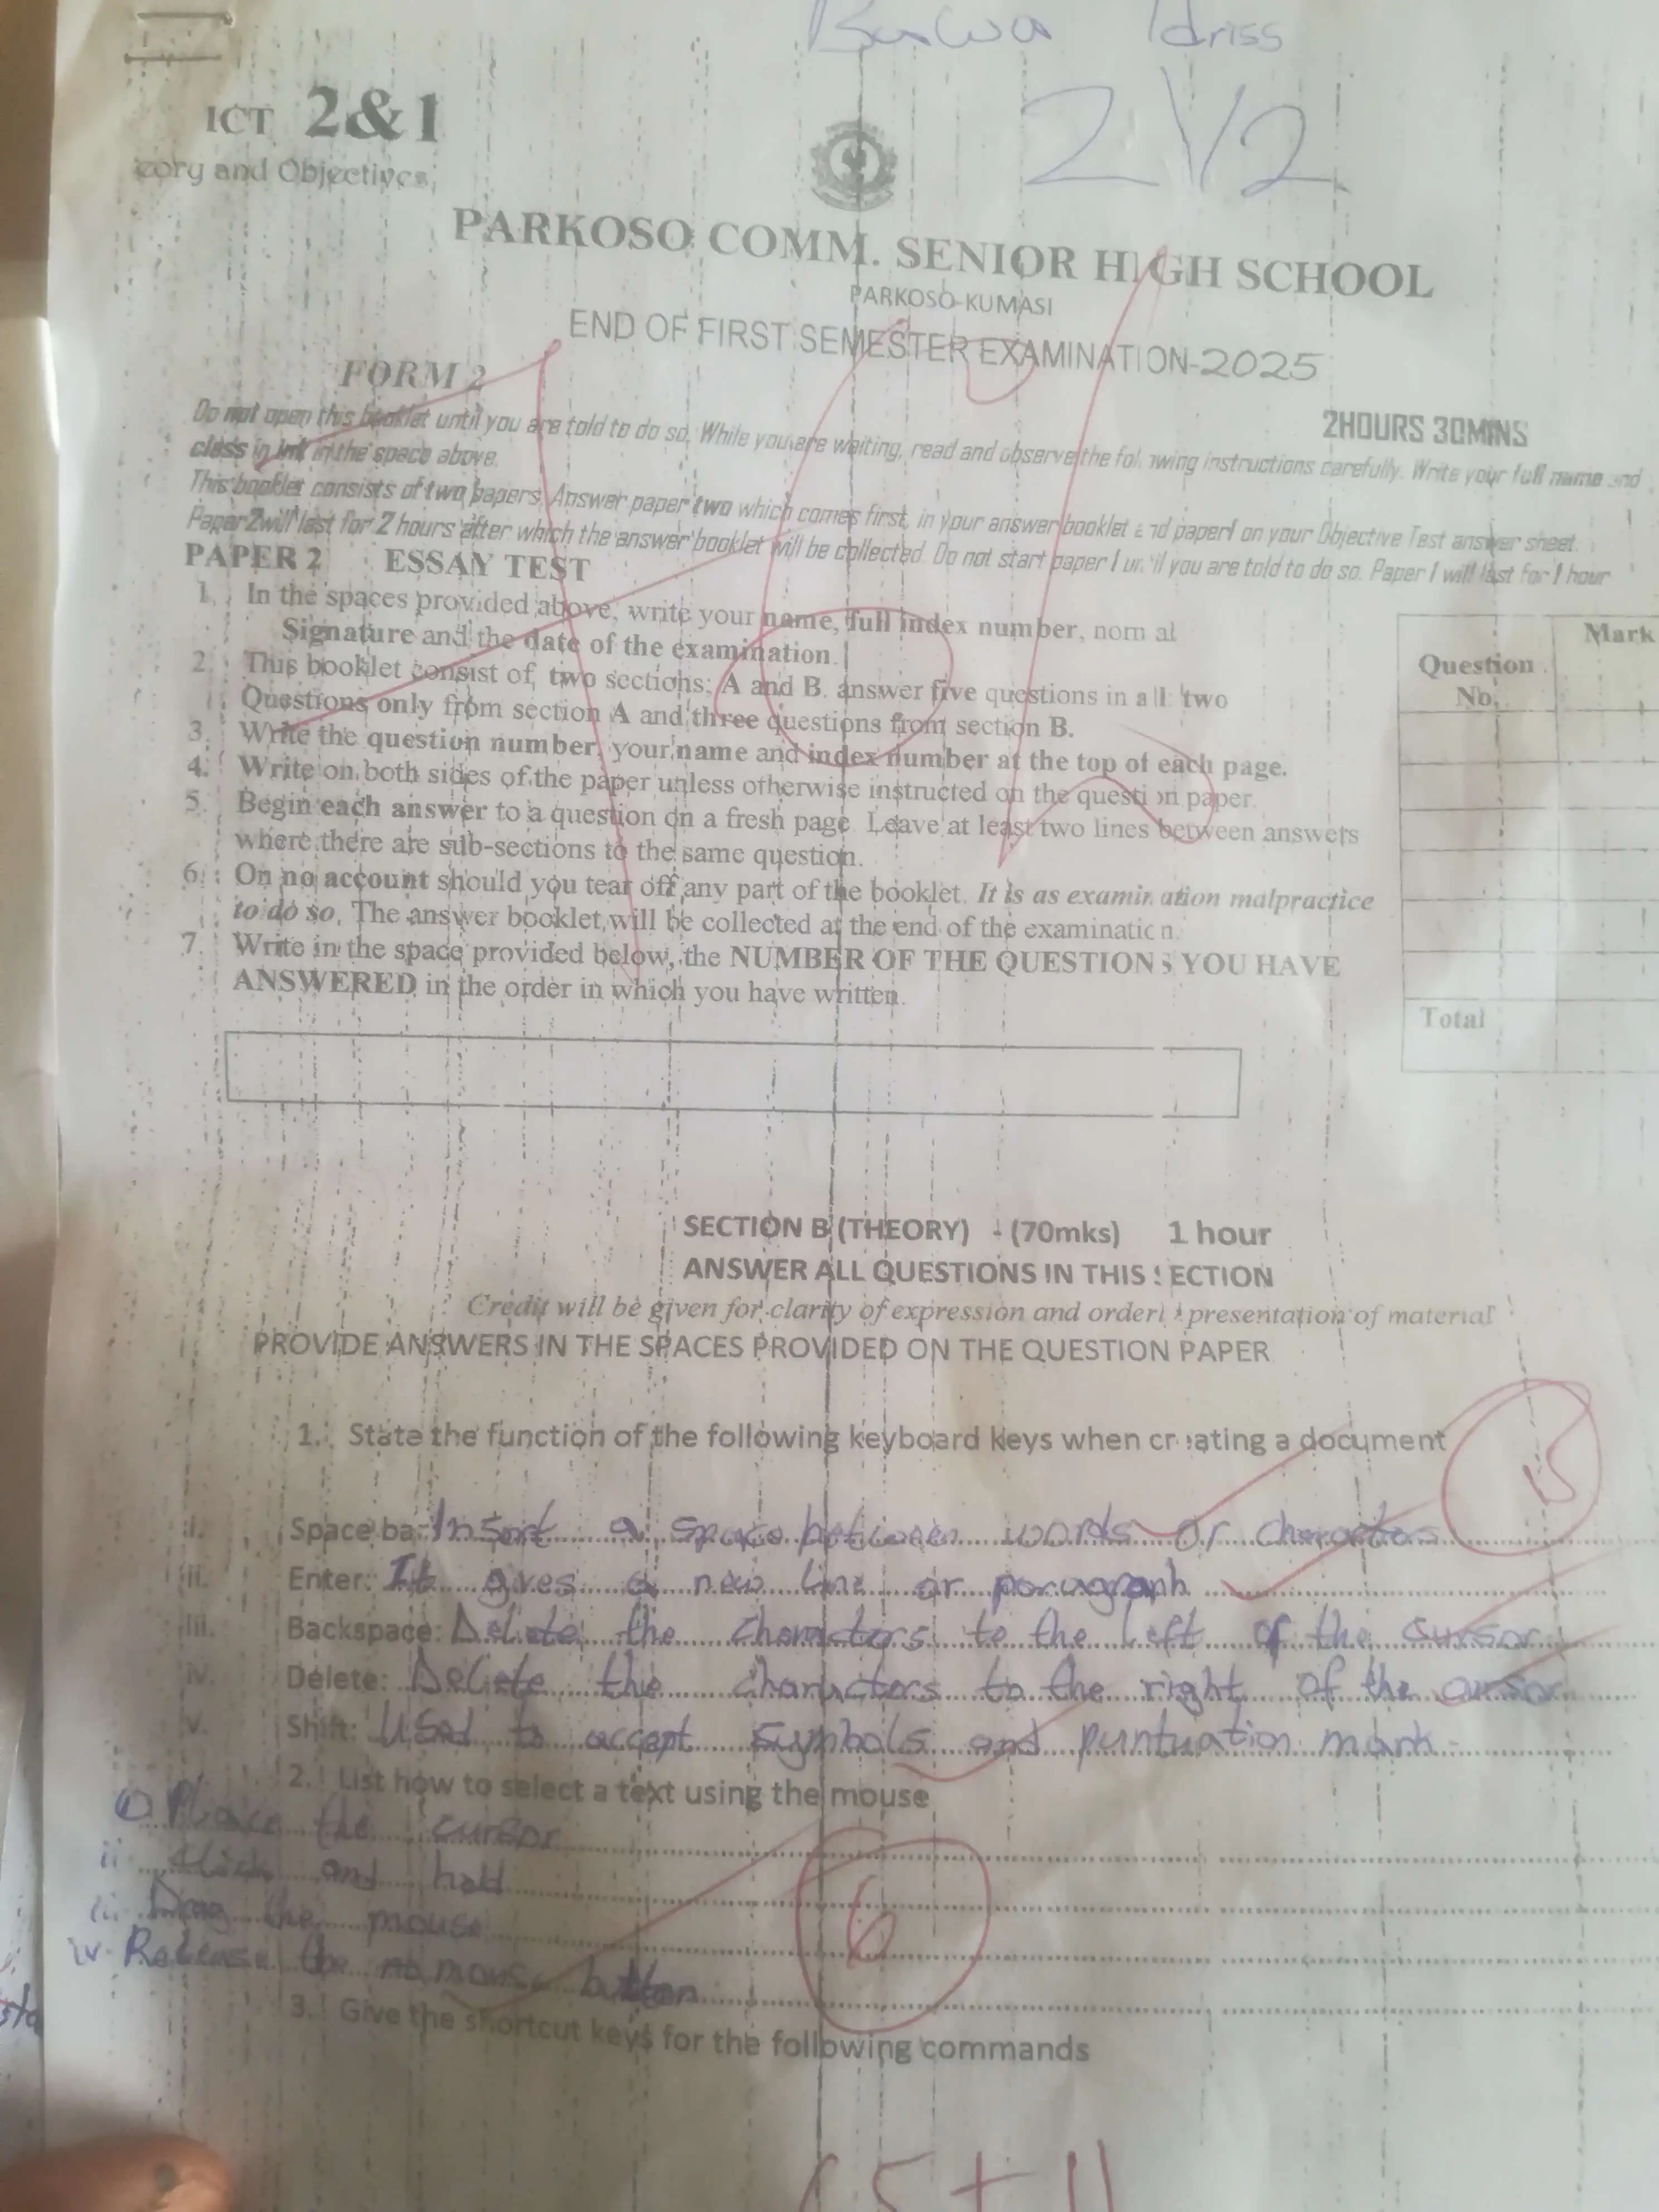 Idriss
ICT 2&1
eory and Objectives,
PARKOSO COMM. SENIOR HIGH SCHOOL
PARKOSO-KUMASI
END OF FIRST SEMESTER EXAMINATION-2025
FORM 2
2HOURS 30MINS
Do not open this booklet until you are told to do so. While you are waiting, read and observe the following instructions carefully. Write your full name and
class in ink in the space above.
This booklet consists of two papers. Answer paper two which comes first, in your answer booklet and paper 1 on your Objective Test answer sheet.
Paper 2 will last for 2 hours after which the answer booklet will be collected. Do not start paper 1 until you are told to do so. Paper 1 will last for 1 hour
PAPER 2 ESSAY TEST
1. In the spaces provided above, write your name, full index number, nom al
Signature and the date of the examination.
2. This booklet consist of two sections; A and B. answer five questions in all two
Questions only from section A and three questions from section B.
3. Write the question number, your name and index number at the top of each page.
4. Write on both sides of the paper unless otherwise instructed on the question paper.
5. Begin each answer to a question on a fresh page. Leave at least two lines between answers
where there are sub-sections to the same question.
6. On no account should you tear off any part of the booklet. It is as examination malpractice
to do so. The answer booklet will be collected at the end of the examination.
7. Write in the space provided below, the NUMBER OF THE QUESTIONS YOU HAVE
ANSWERED in the order in which you have written.
Question No. Mark
Total
SECTION B (THEORY) - (70mks) 1 hour
ANSWER ALL QUESTIONS IN THIS SECTION
Credit will be given for clarity of expression and orderly presentation of material
PROVIDE ANSWERS IN THE SPACES PROVIDED ON THE QUESTION PAPER
1. State the function of the following keyboard keys when creating a document
15
i. Space bar: Insert a space between words or characters
ii. Enter: It gives a new line or paragraph
iii. Backspace: Delete the characters to the left of the cursor
iv. Delete: Delete the characters to the right of the cursor
v. Shift: Used to accept symbols and puntuation mark
2. List how to select a text using the mouse
i Place the cursor
ii Click and hold
iii Drag the mouse
iv Release the mouse button
6
3. Give the shortcut keys for the following commands
15 + 11